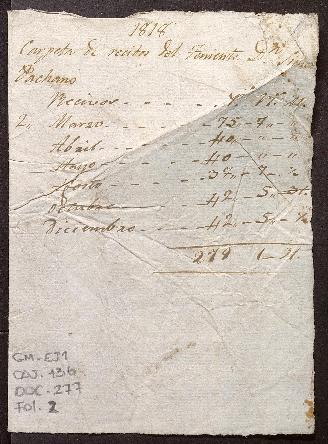 1818
Carpeta de recibos del Teniente Dn
Pachano
Recivos
2,, Marzo - - - 75 - 7
Abril - - - 40 - " - "
Mayo - - - 40 - " - "
Agosto - - - 38,, - 7 -
Octubre - - - 42,, - 5,, -
Diciembre - - 42,, - 5,, -
279 1
GM-EJ1
CAJ. 136
DOC. 277
FOL. 2